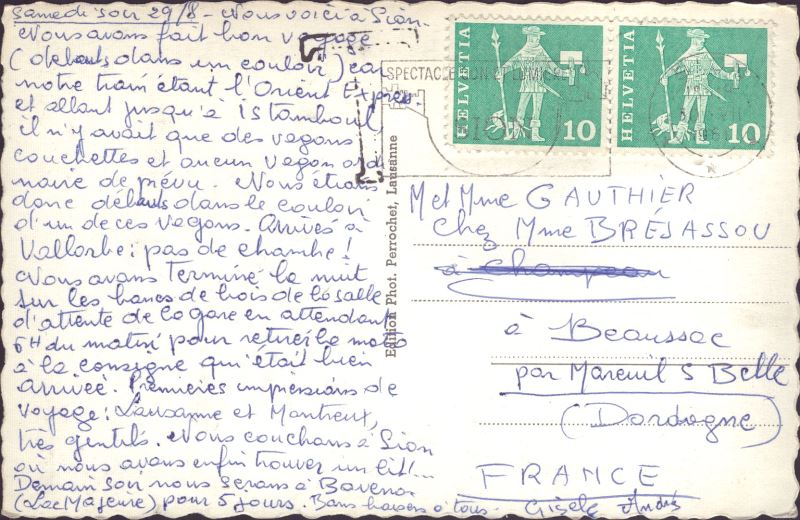 Samedi soir 29/8 - Nous voici à Sion.
Nous avons fait bon voyage
(debouts dans un couloir) car
notre train étant l'Orient Expres.
et allant jusqu'à Istamboul
il n'y avait que des vagons
couchettes et aucun vagon ordi
naire de prévu. Nous étions
donc debouts dans le couloir
d'un de ces vagons. Arrivés à
Vallorbe: pas de chambre!
Nous avons terminé la nuit
sur les bancs de bois de la salle
d'attente de la gare en attendant
6H du matin pour retirer la malle
à la consigne qui était bien
arrivée. Premières impressions de
voyage: Lausanne et Montreux,
très gentils. Nous couchons à Sion
où nous avons enfin trouver un lit!...
Demain soir nous serons à Baveno
(Lac Majeure) pour 5 jours. Bons baisers à tous. Gisèle André
Edition Phot. Perrochet, Lausanne
SPECTACLE SON ET LUMIERE
SION
HELVETIA 10
HELVETIA 10
M et Mme GAUTHIER
chez Mme BRÉJASSOU
à Champeau
à Beaussac
par Mareuil s Belle
(Dordogne)
FRANCE